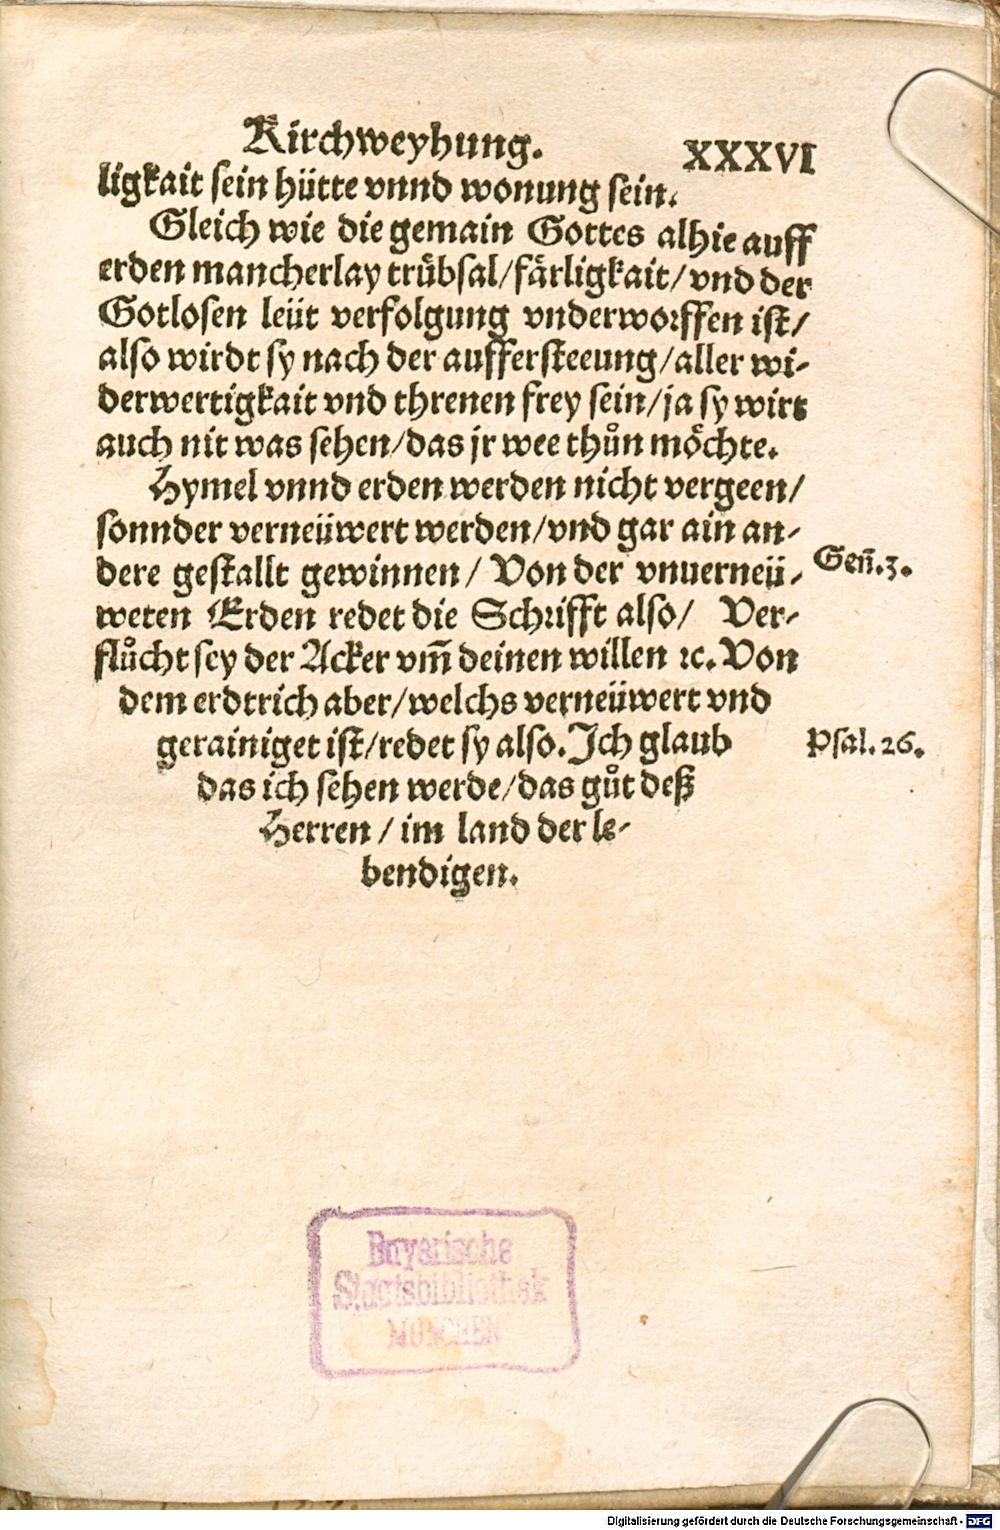 Kirchweyhung. XXXVI
ligkait sein hütte vnnd wonung sein.
Gleich wie die gemain Gottes alhie auff
erden mancherlay trübsal/färligkait/vnd der
Gotlosen leüt verfolgung vnderworffen ist/
also wirdt sy nach der auffersteeung/aller wi-
derwertigkait vnd threnen frey sein/ja sy wirt
auch nit was sehen/das jr wee thůn möchte.
Hymel vnnd erden werden nicht vergeen/
sonnder verneüwert werden/vnd gar ain an-
dere gestallt gewinnen/ Von der vnuerneü-
Gen̄.3.
weten Erden redet die Schrifft also/ Ver-
flůcht sey der Acker vm̄ deinen willen ꝛc. Von
dem erdtrich aber/welchs verneüwert vnd
gerainiget ist/redet sy also. Ich glaub
Psal. 26.
das ich sehen werde/das gůt deß
Herren/ im land der le-
bendigen.
Bayerische
Staatsbibliothek
MÜNCHEN
Digitalisierung gefördert durch die Deutsche Forschungsgemeinschaft - DFG